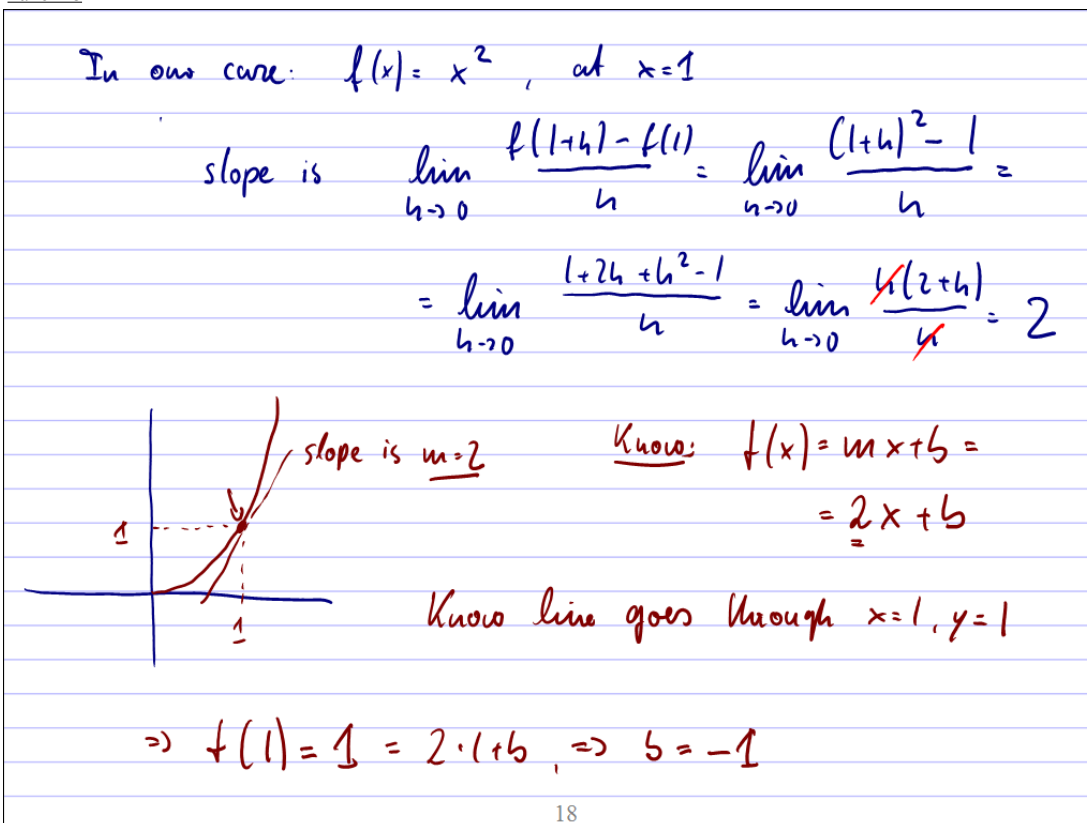 In our case: f(x) = x², at x=1
slope is lim h→0 (f(1+h) - f(1))/h = lim h→0 ((1+h)² - 1)/h =
= lim h→0 (1+2h+h²-1)/h = lim h→0 h(2+h)/h = 2
slope is m=2
Know: f(x) = mx+b =
= 2x+b
1
1
Know line goes through x=1, y=1
⇒ f(1) = 1 = 2·1+b, ⇒ b = -1
18